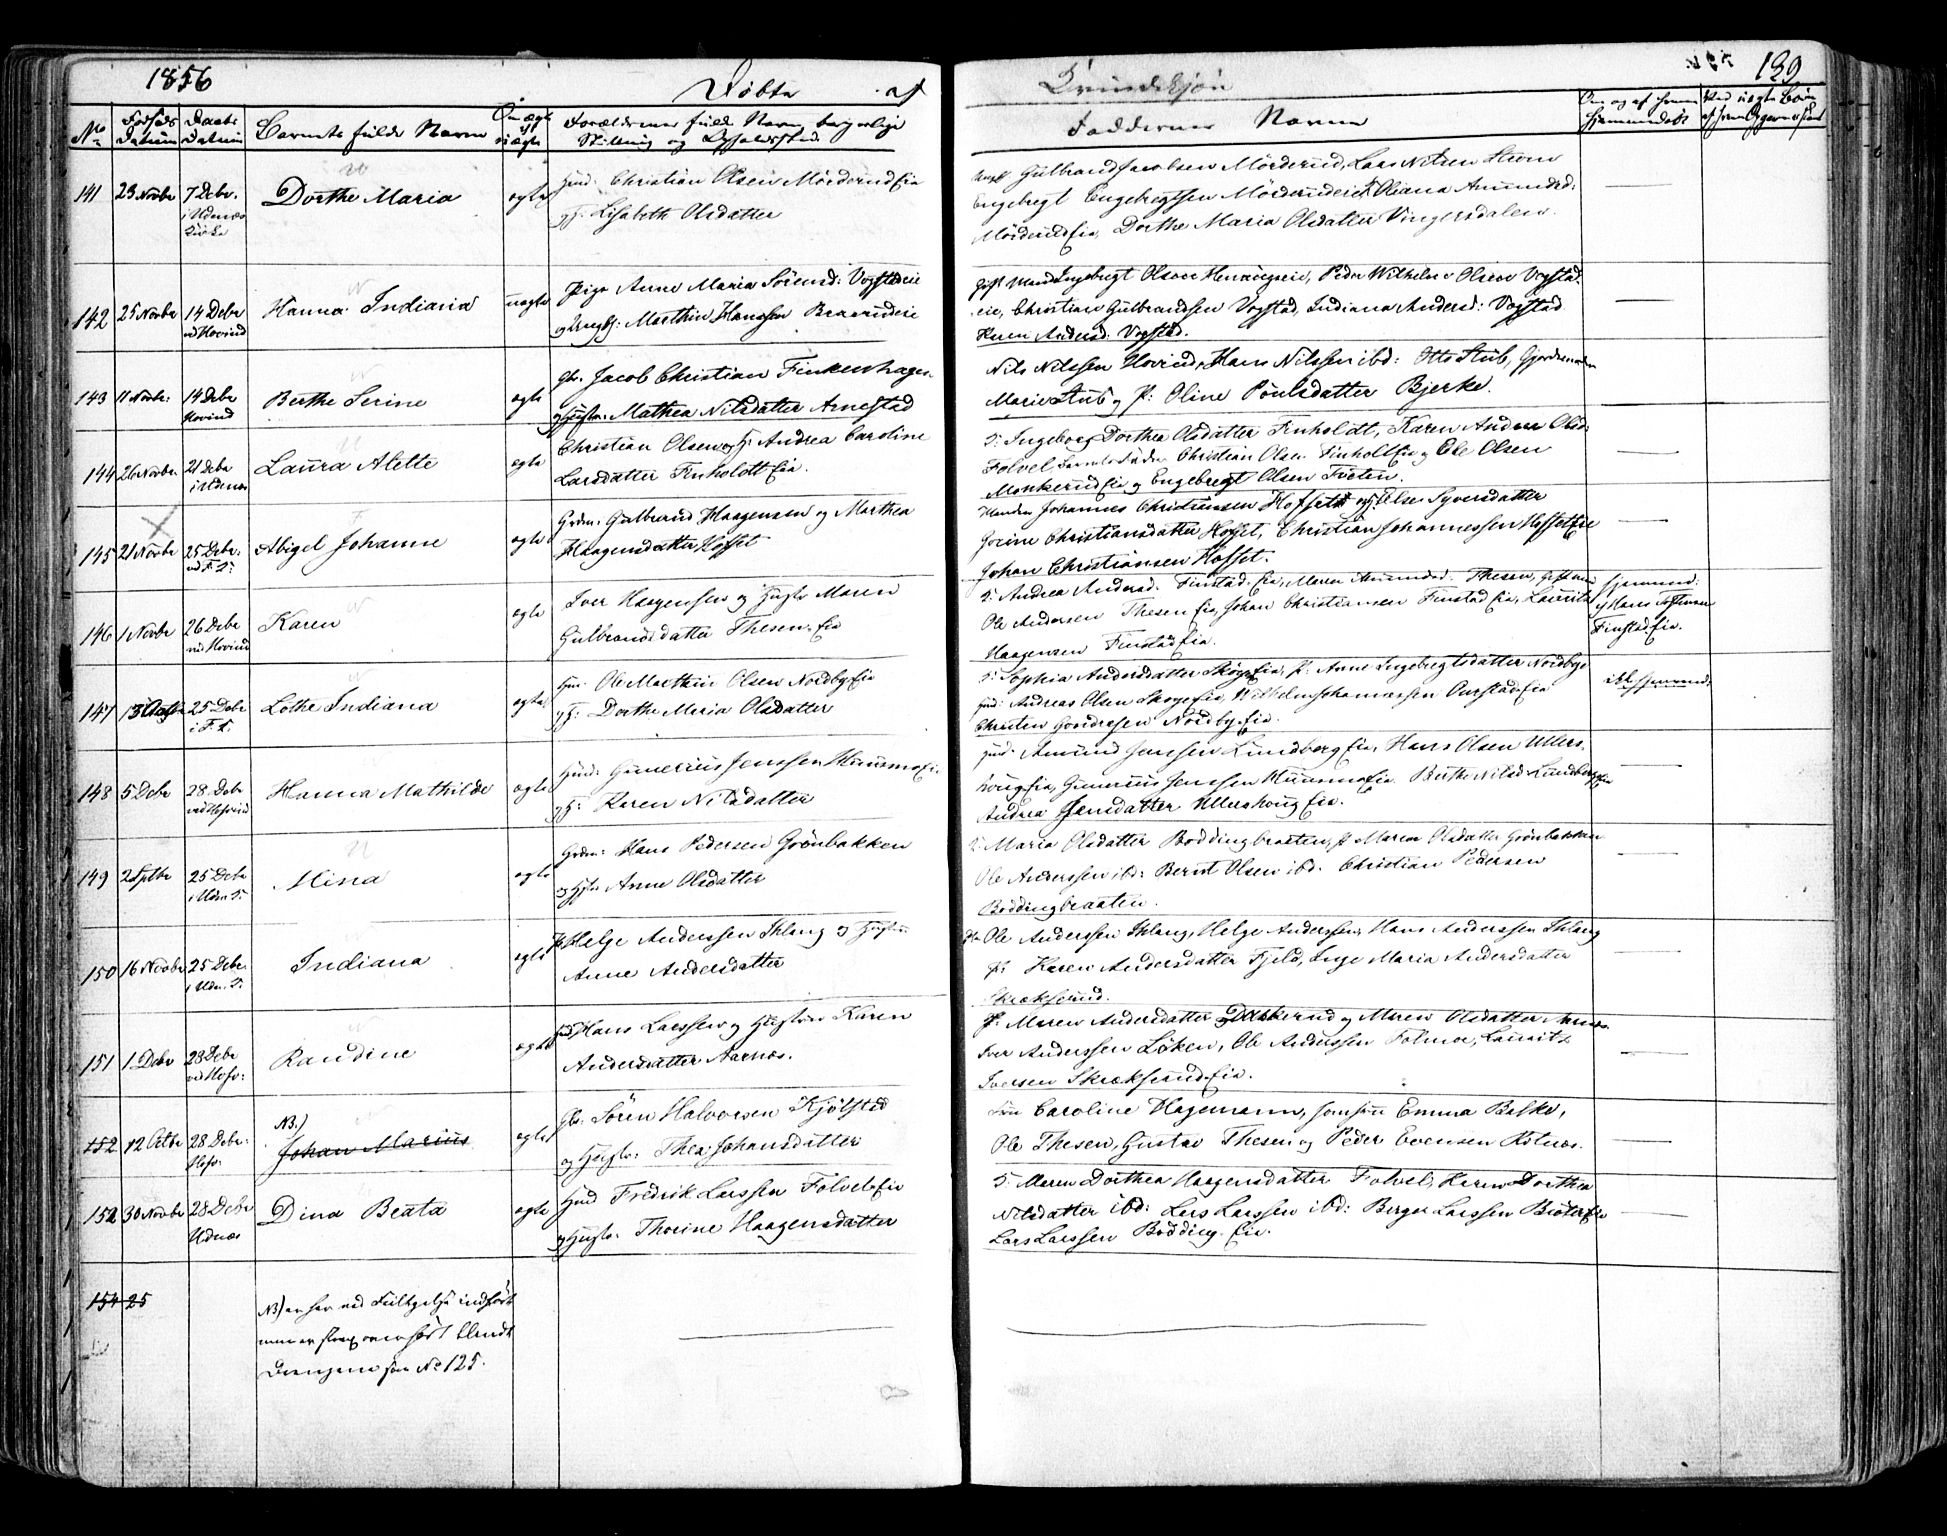 1856 Döbte af Qvindekjön 139
No Fødsels Datum Daabs Datum Barnets fulde Navn Om ægte el. uægte Forældrenes fulde Navn, borgerlige Stilling og Opholdssted Faddernes Navne Om og af hvem hjemmedøbt
141 23 Novbr 7 Debr. i Udenæs Kirke Dorthe Maria ægte Huusmd: Christian Olsen Mörderud Eie
og H: Lisabeth Olsdatter
Ungk: Gulbrand Jacobsen Mörderud, Lars Nilsen
Engebregt Engebregtsen Mörderudeie, Oleana Amundsd:
Mörderud Eie, Dorthe Maria Olsdatter Vingersdalen.
142 25 Novbr 14 Debr ved Hovind Hanna Indiana uægte Pige Anne Maria Sörensd: Vogstadeie
og Ungk: Marthin Hanssen
Gift Mand Ingebregt Olsen, Peder Wilhelm Olsen Vogstad
eie, Christian Gulbrandsen Vogstad, Indiana Andersd: Vogstad
Karen Andersd: Vogstad.
143 11 Novbr: 14 Debr Hovind Berthe Serine ægte Gbr. Jacob Christian Finkenhagen
og Hustr: Mathea Nilsdatter Arnestad
Nils Nilssen Hovind, Hans Nilssen ibd: Otto Stub,
Marie Stub og P: Oline Poulsdatter Bjerke.
144 26 Novbr. 21 Debr i Udenæs Laura Alette ægte Christian Olsen og H: Andrea Caroline
Larsdatter Finholdt Eie.
P: Ingeborg Dorthea Olsdatter Finholdt, Karen Andrea Olsd:
Folvel, Barnets Fader Christian Olsen Finholt Eie og Ole Olsen
Monkerud Eie og Engebregt Olsen Tveten.
145 21 Novbr 25 Debr: ved F. K: Abigel Johanne ægte Grdm: Gulbrand Haagensen og Marthea
Haagensdatter Hofset
Manden Johannes Christiansen Hofset og H: Else Syversdatter
Gorine Christiansdatter Hofset, Christian Johannessen Hofset Eie
Johan Christiansen Hofset.
146 1 Novbr 26 Debr ved Hovind Karen ægte Iver Haagensen og Hustr Maren
Gulbrandsdatter Thesen. Eie
P: Andrea Andersd. Finstad. Eie, Maren Amundsd. Thesen, Gift md
Ole Andersen Thesen Eie, Johan Christiansen Finstad Eie, Lauritz
Haagensen Finstad Eie.
hjemmed:
af Hans
Finstad Eie.
147 25 Debr i F. K. Lothe Indiana ægte Hmd: Ole Marthin Olsen Nordby Eie
og H: Dorthe Maria Olsdatter
P: Sophia Andersdatter Skoye Eie, P: Anne Ingebregtsdatter Nordbye
Hmd: Andreas Olsen Skoye Eie, Wilhelm Johannessen Aurstad Eie
Nordby Eie.
ikke hjemmed:
148 5 Debr 28 Debr ved Hofvind Hanna Mathilde ægte Hmd: Gunerius Jenssen Huusmo Eie
og H: Karen Nilsdatter
Hmd. Amund Jenssen Lundberg Eie, Hans Olsen Ullers-
houg Eie, Gunerius Jenssen Huusmo Eie Berthe Nilsd: Lundberg Eie
Andrea Jensdatter Ullershoug Eie.
149 2 Septbr 25 Debr i Uden. K. Mina ægte Grdm: Hans Pedersen Grönbakken
og Hstr Anne Olsdatter
P: Maria Olsdatter Boddingbraaten, P: Maren Olsdatter Grönbakken
Ole Anderssen ibd: Bernt Olsen ibd. Christian Pedersen
Boddingbraaten.
150 16 Novbr 25 Debr. i Uden. K. Indiana ægte Helge Anderssen Ihlang og Hustr:
Anne Andersdatter
Ole Anderssen Ihlang, Helge Anderssen, Hans Anderssen Ihlang
P: Karen Andersdatter Fjeld, Inge Maria Andersdatter
Skrækserud.
151 1 Debr 28 Debr ved Hofv: Randine ægte Hmd Hans Larssen og Hustru Karen
Andersdatter Aarnæs.
P: Maren Andersdatter Daskerud og Maren Olsdatter Aarnæs.
Iver Anderssen Löken, Ole Anderssen Folmoe, Lauritz
Iversen Skrækserud. Eie.
152 12 Octbr 28 Debr: Hofv: NB.)
Johan Marius ægte Gbr: Sören Halvorsen Kjölstad
og Hustr: Thea Johansdatter
Fru Caroline Hagemann, Jomfru Emma Bekke,
Ole Thesen, Gustav Thesen og Peder Evensen Holnæs.
152 30 Novbr 28 Debr Udnæs Dina Beata ægte Hmd Fredrik Larssen Folvel Eie
og Hustr: Thorine Haagensdatter
P: Maren Dorthea Haagensdatter Folvel, Karen Dorthea
Nilsdatter ibd: Lars Larssen ibd: Berger Larssen Eie
Lars Larssen Bödding. Eie.
154 25
NB) er her ved Feiltagelse indfört
men er strax overfört blandt
Drengene som No 125.